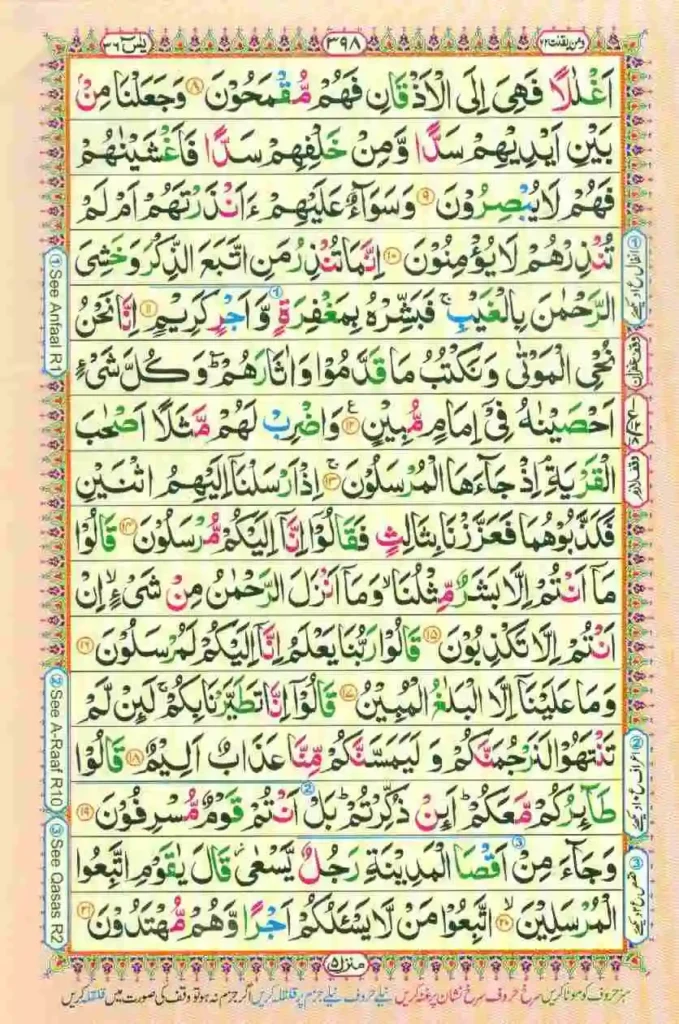 یٰسٓ ۳۶
۳۹۸
ومن یقنت ۲۲
اَغۡلٰلًا فَهِىَ اِلَى الۡاَذۡقَانِ فَهُمۡ مُّقۡمَحُوۡنَ ۸ وَجَعَلۡنَا مِنۡ
بَيۡنِ اَيۡدِيۡهِمۡ سَدًّا وَّمِنۡ خَلۡفِهِمۡ سَدًّا فَاَغۡشَيۡنٰهُمۡ
فَهُمۡ لَا يُبۡصِرُوۡنَ ۹ وَسَوَآءٌ عَلَيۡهِمۡ ءَاَنۡذَرۡتَهُمۡ اَمۡ لَمۡ
تُنۡذِرۡهُمۡ لَا يُؤۡمِنُوۡنَ ۱۰ اِنَّمَا تُنۡذِرُ مَنِ اتَّبَعَ الذِّكۡرَ وَخَشِىَ
الرَّحۡمٰنَ بِالۡغَيۡبِۚ فَبَشِّرۡهُ بِمَغۡفِرَةٍ وَّاَجۡرٍ كَرِيۡمٍ ۱۱ اِنَّا نَحۡنُ
نُحۡىِ الۡمَوۡتٰى وَنَكۡتُبُ مَا قَدَّمُوۡا وَاٰثَارَهُمۡؕ وَكُلَّ شَىۡءٍ
اَحۡصَيۡنٰهُ فِىۡۤ اِمَامٍ مُّبِيۡنٍ ۱۲ وَاضۡرِبۡ لَهُمۡ مَّثَلًا اَصۡحٰبَ
الۡقَرۡيَةِۘ اِذۡ جَآءَهَا الۡمُرۡسَلُوۡنَۚ ۱۳ اِذۡ اَرۡسَلۡنَاۤ اِلَيۡهِمُ اثۡنَيۡنِ
فَكَذَّبُوۡهُمَا فَعَزَّزۡنَا بِثَالِثٍ فَقَالُوۡۤا اِنَّاۤ اِلَيۡكُمۡ مُّرۡسَلُوۡنَ ۱۴ قَالُوۡا
مَاۤ اَنۡتُمۡ اِلَّا بَشَرٌ مِّثۡلُنَاۙ وَمَاۤ اَنۡزَلَ الرَّحۡمٰنُ مِنۡ شَىۡءٍۙ اِنۡ
اَنۡتُمۡ اِلَّا تَكۡذِبُوۡنَ ۱۵ قَالُوۡا رَبُّنَا يَعۡلَمُ اِنَّاۤ اِلَيۡكُمۡ لَمُرۡسَلُوۡنَ ۱۶
وَمَا عَلَيۡنَاۤ اِلَّا الۡبَلٰغُ الۡمُبِيۡنُ ۱۷ قَالُوۡۤا اِنَّا تَطَيَّرۡنَا بِكُمۡۚ لَئِنۡ لَّمۡ
تَنۡتَهُوۡا لَنَرۡجُمَنَّكُمۡ وَلَيَمَسَّنَّكُمۡ مِّنَّا عَذَابٌ اَلِيۡمٌ ۱۸ قَالُوۡا
طَآئِرُكُمۡ مَّعَكُمۡؕ اَئِنۡ ذُكِّرۡتُمۡؕ بَلۡ اَنۡتُمۡ قَوۡمٌ مُّسۡرِفُوۡنَ ۱۹
وَجَآءَ مِنۡ اَقۡصَا الۡمَدِيۡنَةِ رَجُلٌ يَّسۡعٰى قَالَ يٰقَوۡمِ اتَّبِعُوا
الۡمُرۡسَلِيۡنَۙ ۲۰ اتَّبِعُوۡا مَنۡ لَّا يَسۡئَلُكُمۡ اَجۡرًا وَّهُمۡ مُّهۡتَدُوۡنَ ۲۱
① See Anfaal R1
② See A-Raaf R10
③ See Qasas R2
وقف غفران
وقف لازم
منزل ۵
سبز حروف کو موٹا کریں سرخ حروف سرخ نشان پر غنہ کریں نیلے حروف نیلے جزم پر قلقلہ کریں اگر جزم نہ ہو تو وقف کی صورت میں قلقلہ کریں